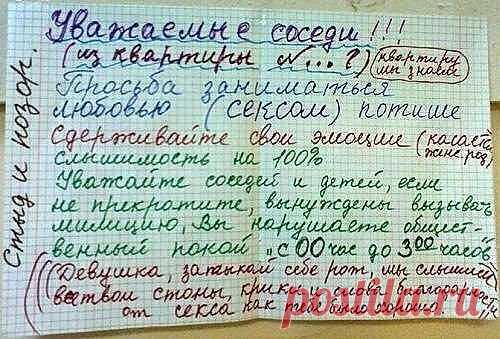 Уважаемые соседи!!!
(из квартиры №...?)
(квартиру мы знаем)
Просьба заниматься
любовью (сексом) потише
Сдерживайте свои эмоции (касается женс. род)
слышимость на 100%
Уважайте соседей и детей, если
не прекратите, вынуждены вызывать
милицию, Вы нарушаете общест-
венный покой „с 00 час до 3 00 часов"
Девушка, затыкай себе рот, мы слышим
все твои стоны, крики и слова благодарности
от секса как тебе было хорошо
Стыд и позор.
posti.ru